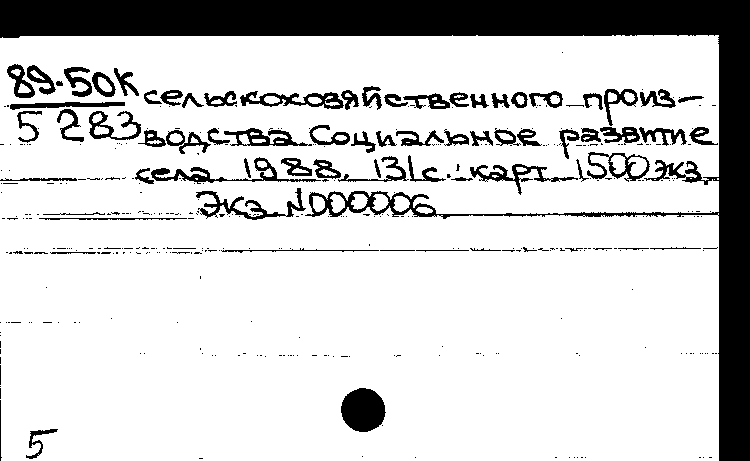 89-50К сельскохозяйственного произ-
5 283 водства. Социальное развитие
села. 1988. 131 с.: карт. 1500 экз.
Экз. №000006.
5